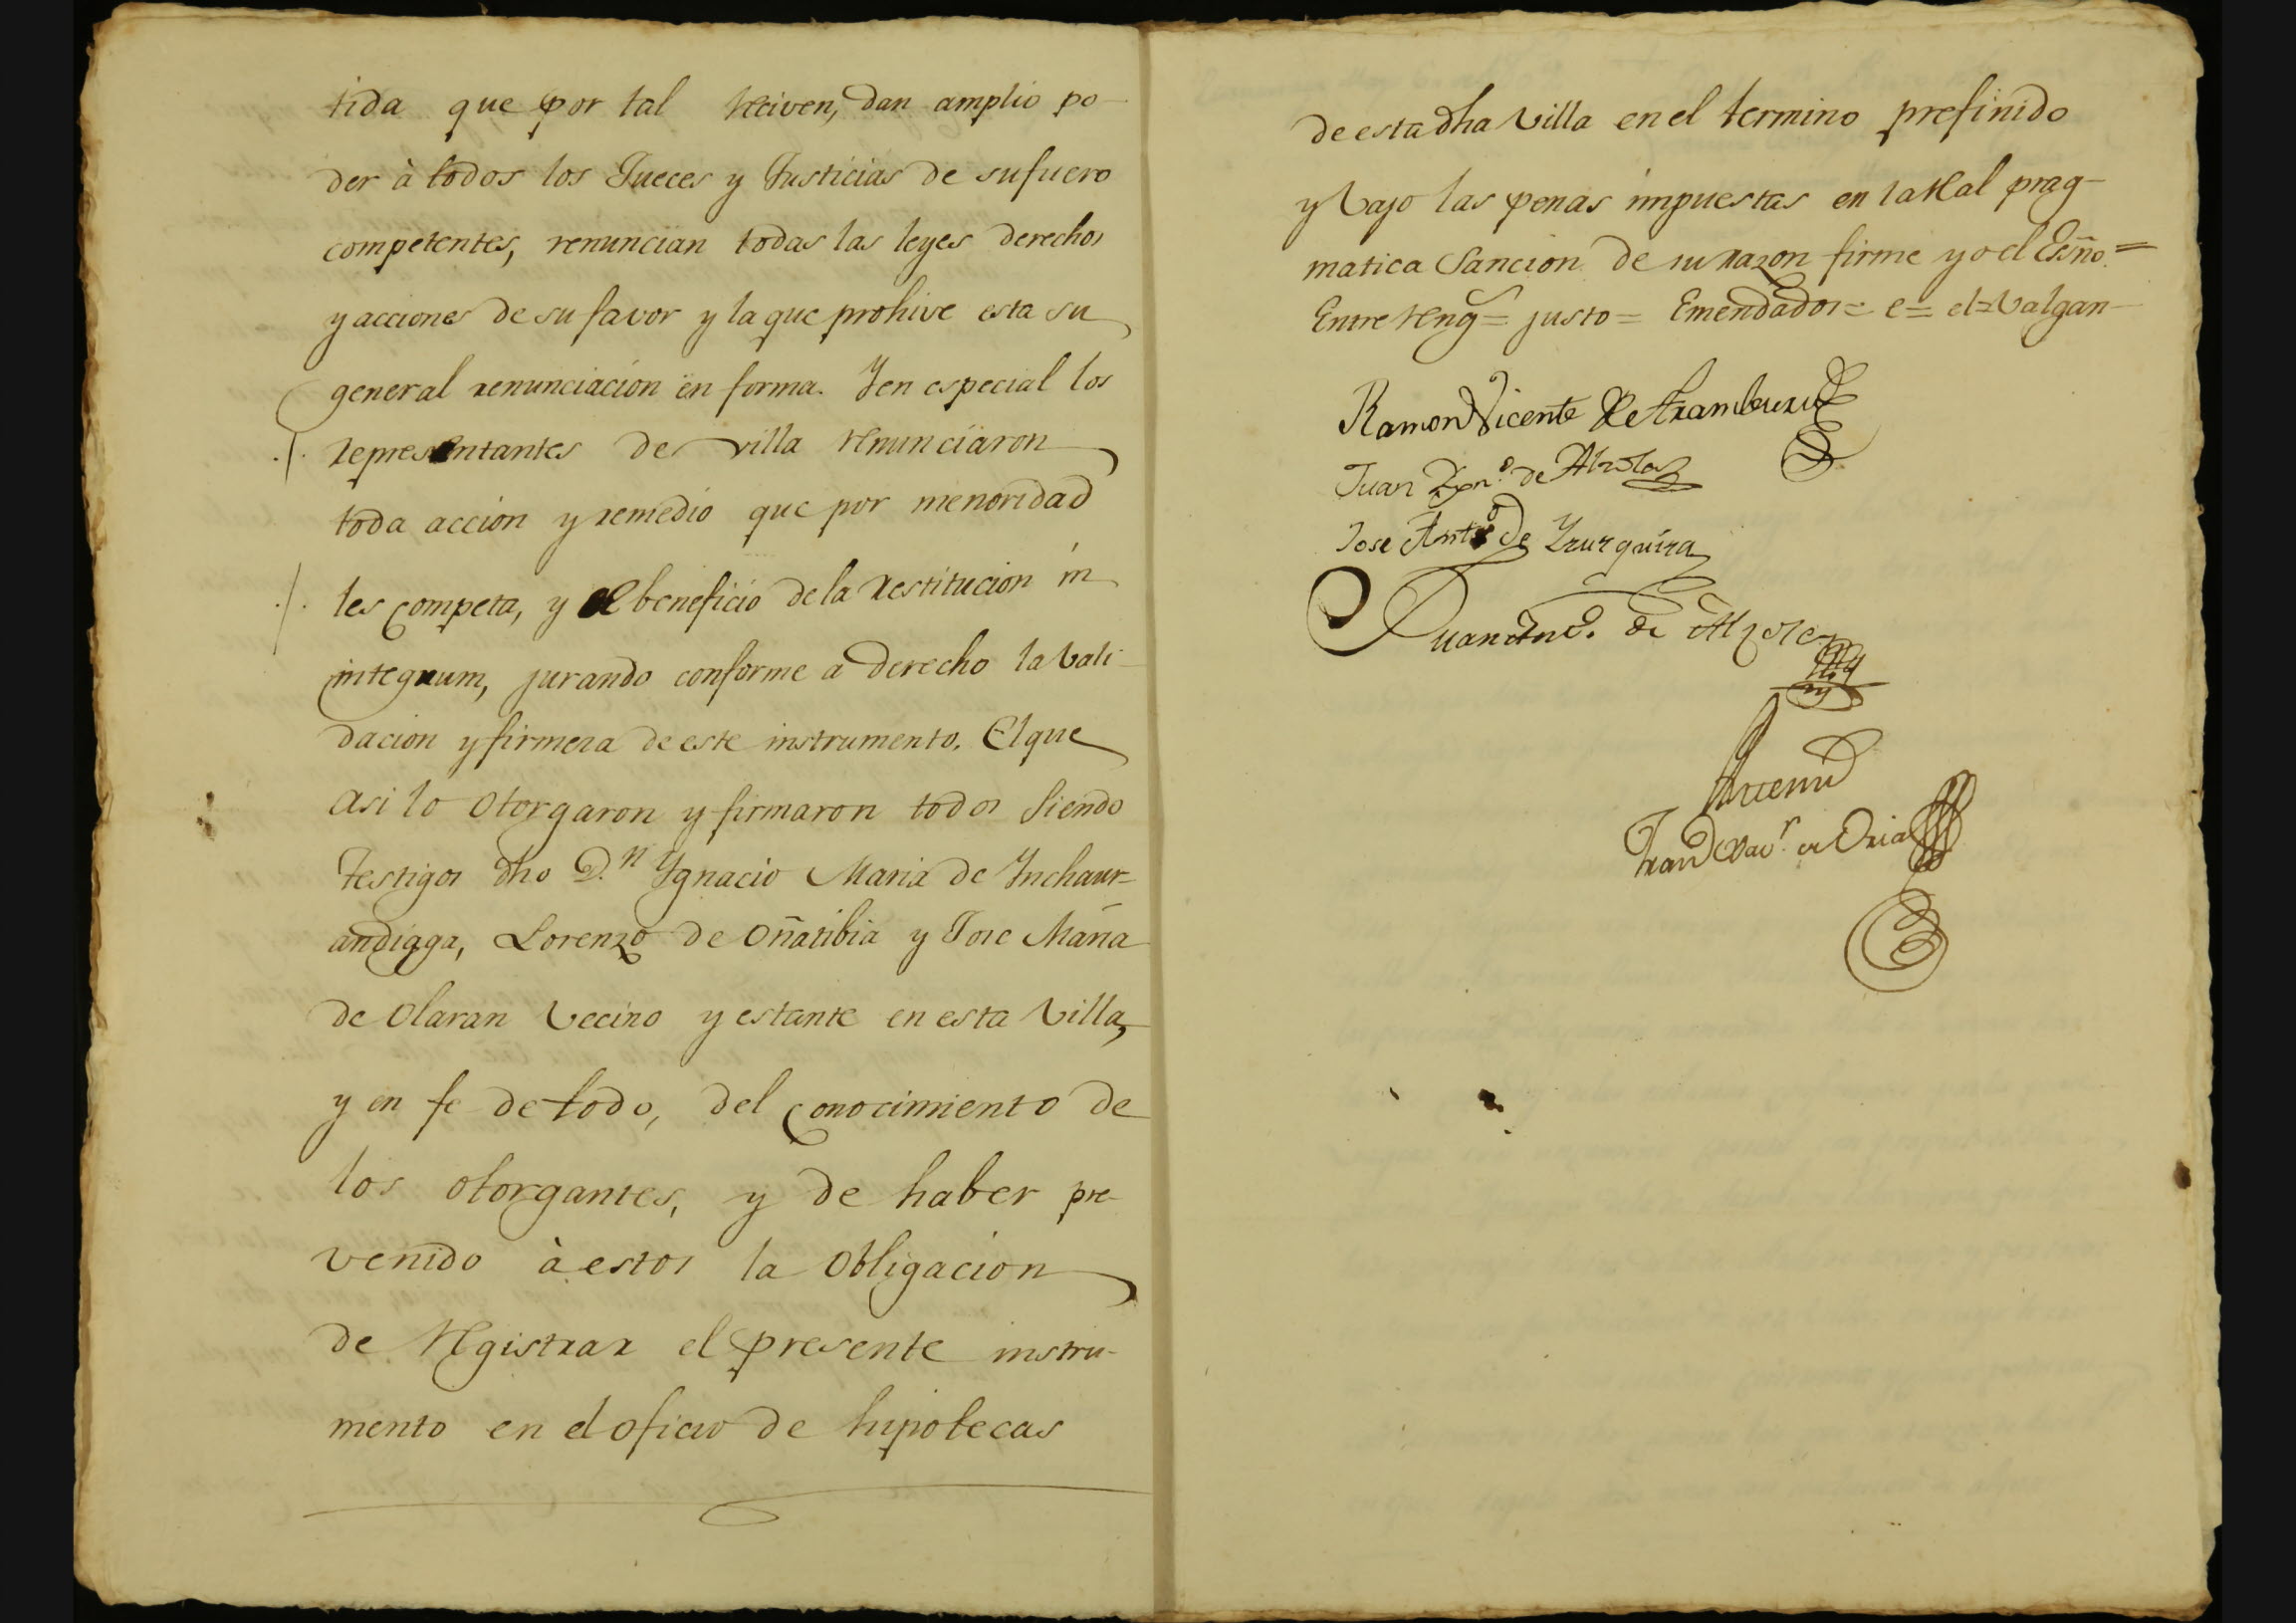 tida que por tal reciven, dan amplio po-
der à todos los Jueces y Justicias de su fuero
competentes, renuncian todas las leyes derechos
y acciones de su favor y la que prohive esta su
general renunciacion en forma. Y en especial los
representantes de villa renunciaron
toda accion y remedio que por menoridad
les competa, y el beneficio de la restitucion in
integrum, jurando conforme a derecho la vali-
dacion y firmeza de este instrumento. El que
asi lo otorgaron y firmaron todos siendo
testigos dho D.n Ygnacio Maria de Ynchaur-
andiaga, Lorenzo de Oñatibia y Jose Maria
de Olaran Vecino y estante en esta Villa,
y en fe de todo, del conocimiento de
los otorgantes, y de haber pre-
venido à estos la obligacion
de registrar el presente instru-
mento en el oficio de hipotecas
de esta dha Villa en el termino prefinido
y vajo las penas impuestas en la Real prag-
matica Sancion de su razon firme yo el Esño.=
Entre reng.= justo= Emendados= e= el= Valgan-
Ramon Vicente de Aramburu
Juan de Alzola
Jose Ant.o de Yzurquiza
Juan Ant.o de Alzola
Ante mi
Fran.co Xav.r de Oria